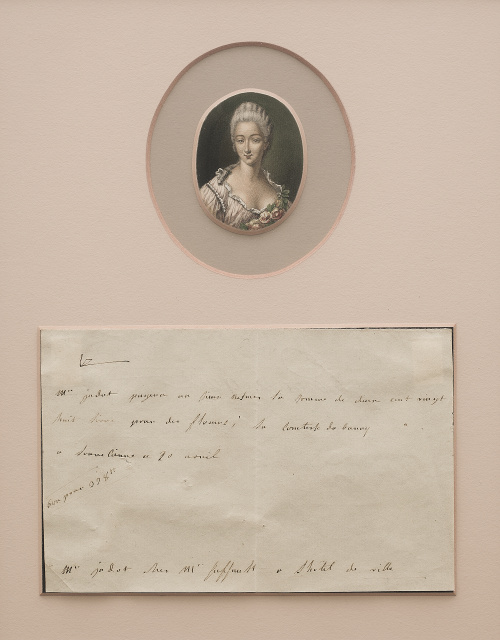 Mr jodot payera au sieur la somme de deux cent vingt
huit livres pour des plumes; la comtesse du barry
a Louveciennes ce 20 avril
bon pour 228 ll
Mr jodot chez Mr a l'hotel de ville